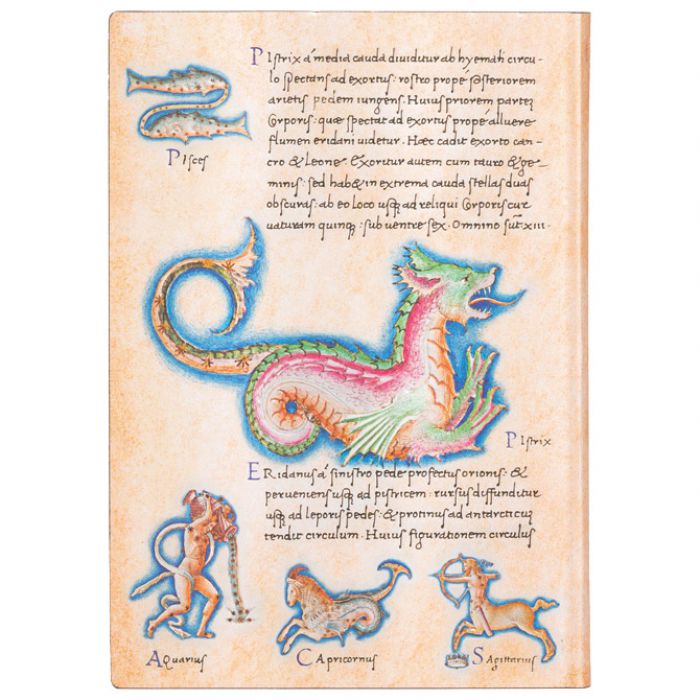 Pisces
PIstrix á media cauda diuiditur ab hyemali circu-
lo spectans ad exortus: rostro propé posteriorem
arietis pedem iungens. Huius priorem partẽ
Corporis: quæ spectat ad exortus prope alluere
flumen eridani uidetur. Hæc cadit exorto can-
cro & leone. Exoritur autem cum tauro & ge-
minis: sed hab& in extrema cauda stellas duas
obscuras: ab eo loco usq; ad reliqui Corporis cur
uaturam quinq; sub uentre sex. Omnino sũt xiii.
PIstrix
ERidanus á sinistro pede profectus orionis: &
perueniens usq; ad pistricem: rursus diffunditur
usq; ad leporis pedes: & protinus ad antarcticuz
tendit circulum. Huius figurationem circulus
AQuarius
CApricornus
SAgittarius